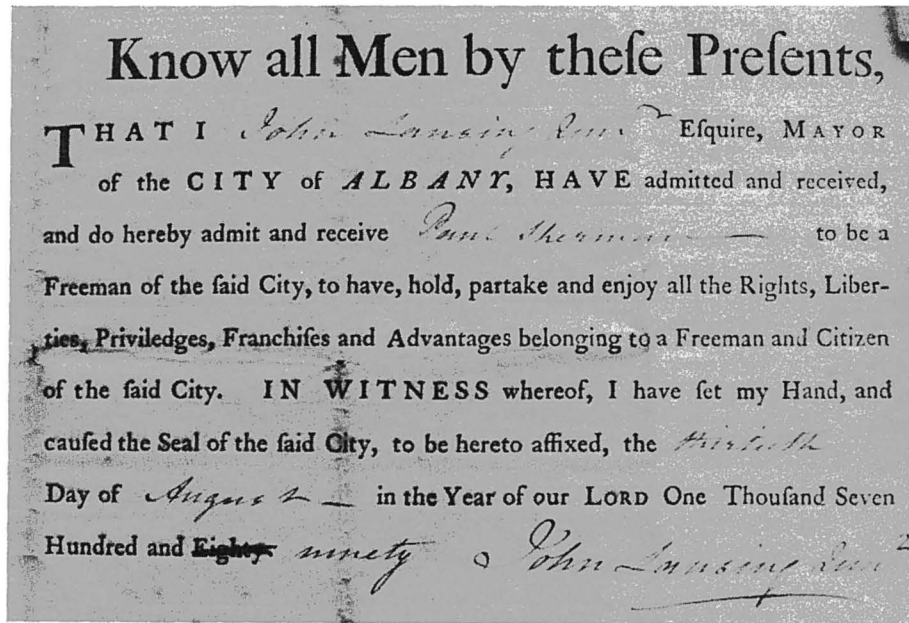 Know all Men by theſe Preſents,
THAT I John Lansing Junr Eſquire, MAYOR
of the CITY of ALBANY, HAVE admitted and received,
and do hereby admit and receive Paul Sherman — to be a
Freeman of the ſaid City, to have, hold, partake and enjoy all the Rights, Liber-
ties, Priviledges, Franchiſes and Advantages belonging to a Freeman and Citizen
of the ſaid City. IN WITNESS whereof, I have ſet my Hand, and
cauſed the Seal of the ſaid City, to be hereto affixed, the thirtieth
Day of August — in the Year of our LORD One Thouſand Seven
Hundred and Eighty ninety John Lansing Junr